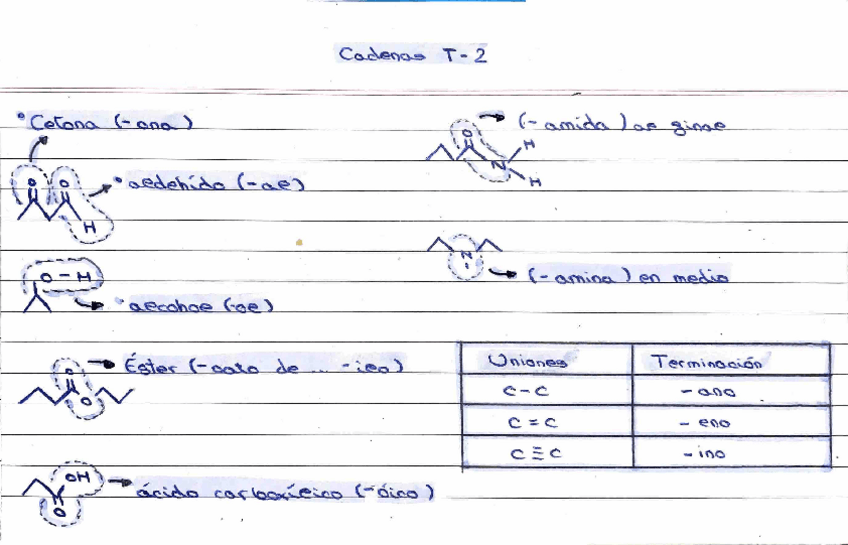 Cadenas T-2
• Cetona (-ona)
O O
H
• aldehído (-al)
O-H
• alcohol (-ol)
O
O
Éster (-oato de ... -ilo)
OH
O
ácido carboxílico (-óico)
O
N
H
H
(-amida) al final
N
(-amina) en medio
Uniones Terminación
C-C -ano
C=C -eno
C≡C -ino